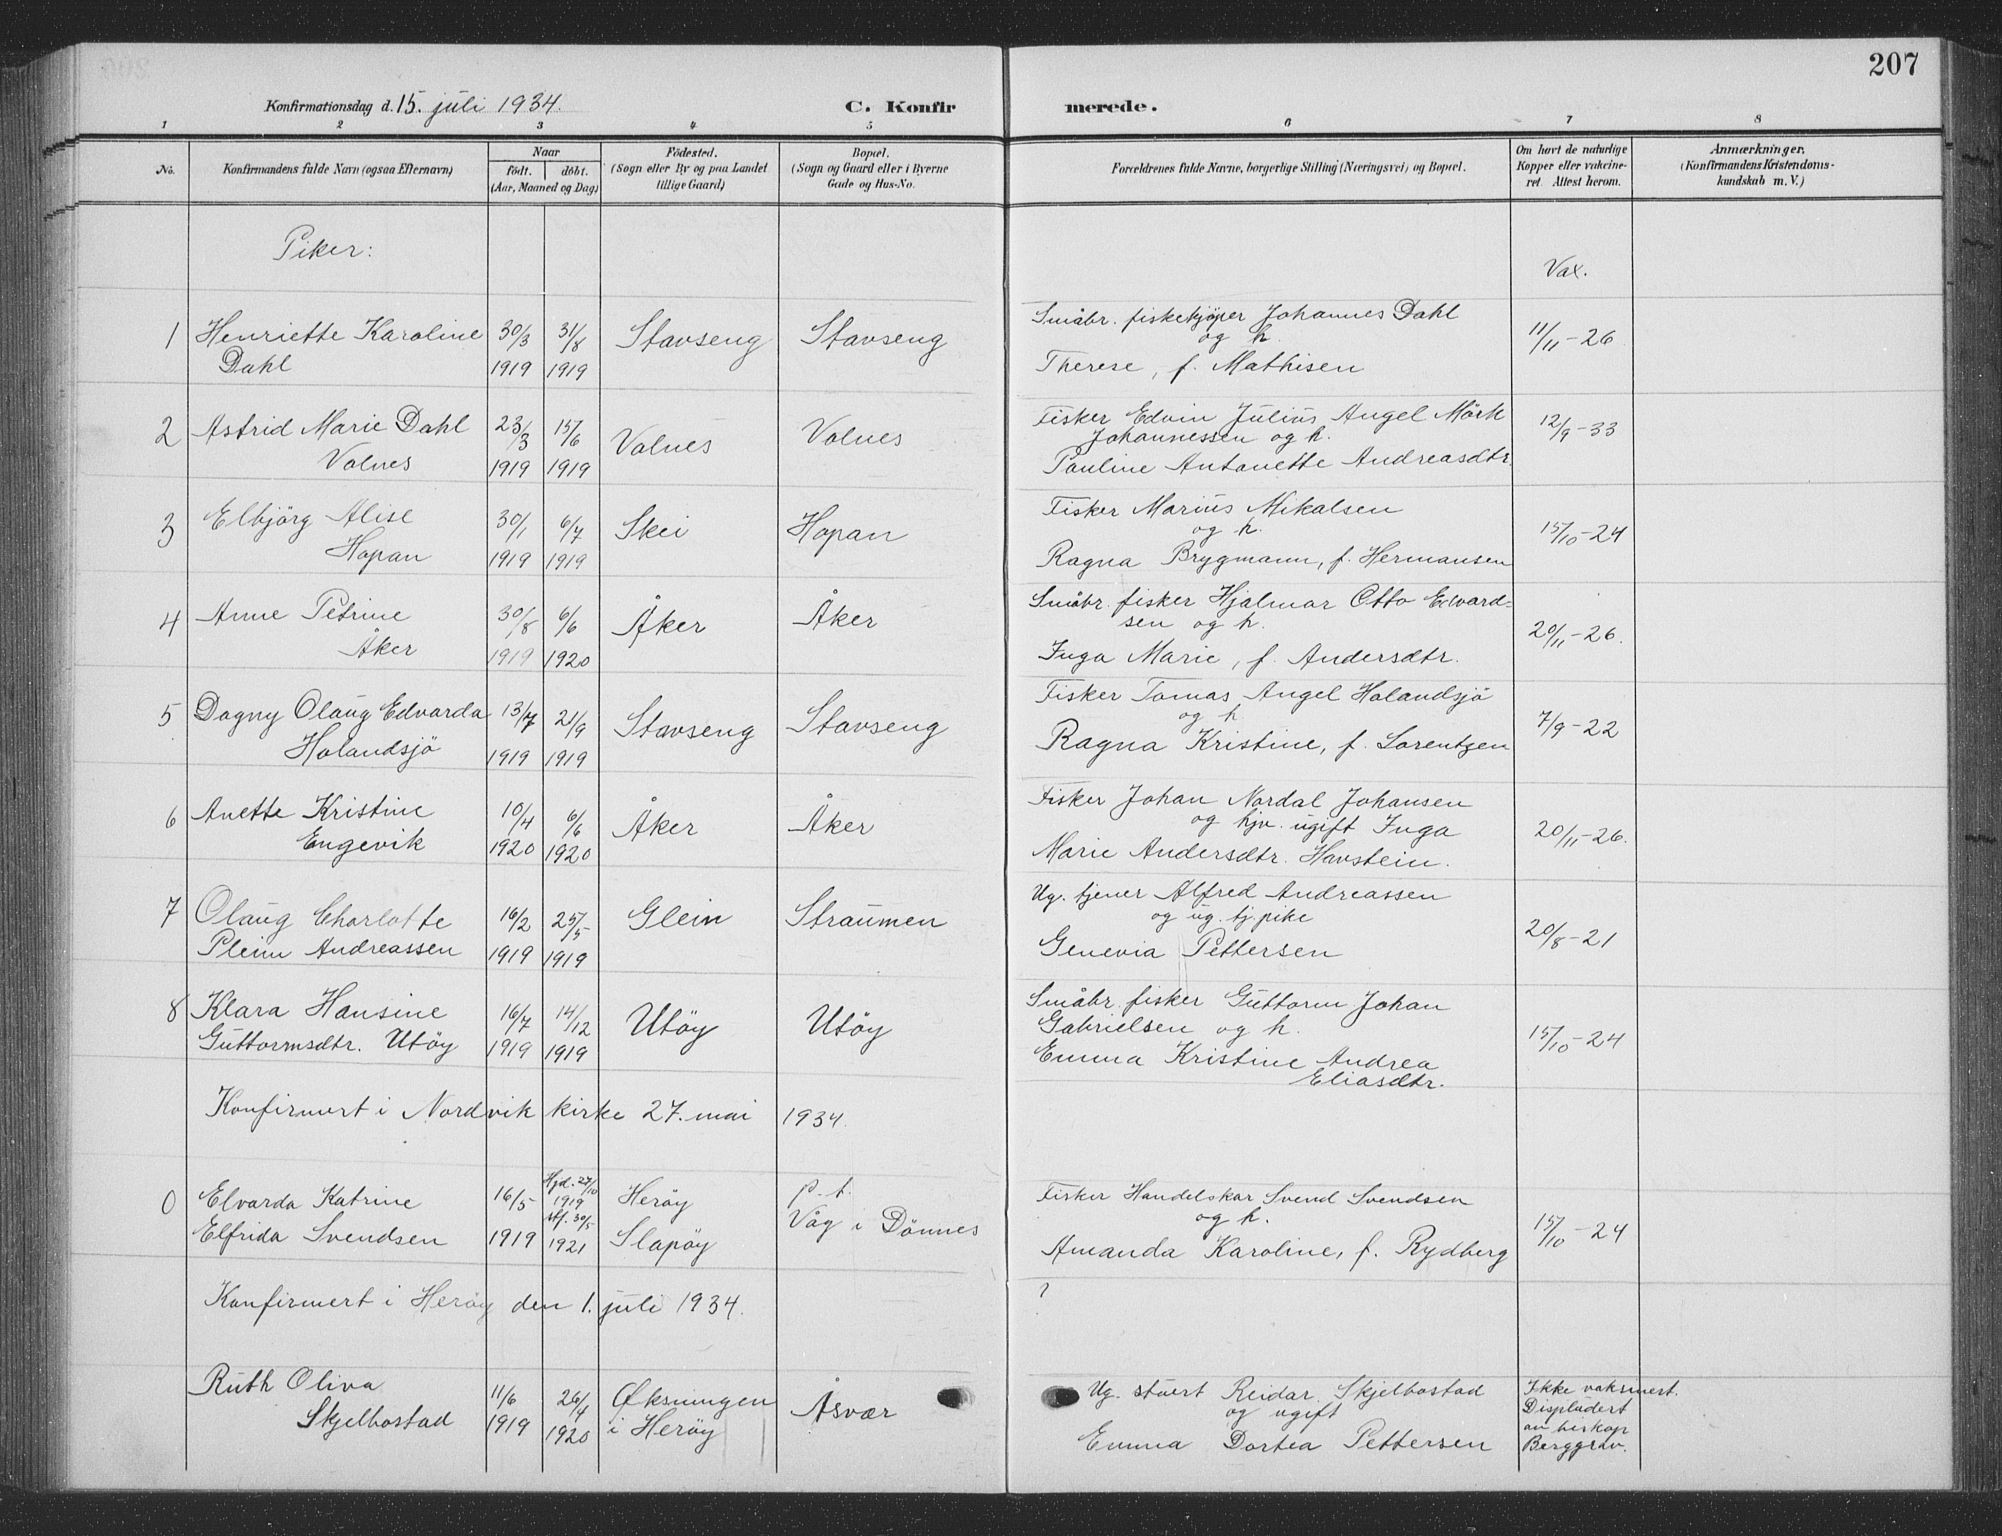 207
Konfirmationsdag d. 15. juli 1934. C. Konfirmerede.
1 2 3 4 5 6 7 8
No. Konfirmandens fulde Navn (ogsaa Efternavn)
Naar
født. døbt.
(Aar, Maaned og Dag)
Fødested.
(Sogn eller By og paa Landet
tillige Gaard)
Bopæl.
(Sogn og Gaard eller i Byerne
Gade og Hus-No.
Forældrenes fulde Navne, borgerlige Stilling (Næringsvei) og Bopæl.
Om havt de naturlige
Kopper eller vakcine-
ret. Attest herom.
Anmærkninger.
(Konfirmandens Kristendoms-
kundskab m. V.)
Piker:
Vax.
1 Henriette Karoline 30/3 31/8 Stavseng Stavseng
Dahl 1919 1919
Småbr. fiskekjøper Johannes Dahl
og h. 11/11-26
Therese, f. Mathisen
2 Astrid Marie Dahl 23/3 15/6 Volnes Volnes
Volnes 1919 1919
Fisker Edvin Julius Angel Mörk
Johannessen og h. 12/9-33
Pauline Antonette Andreasdtr.
3 Elbjörg Alise 30/1 6/7 Skei Hopan
Hopan 1919 1919
Fisker Marius Mikalsen
og h. 15/10-24
Ragna Brygmann, f. Hermansen
4 Anne Petrine 30/8 6/6 Åker Åker
Åker 1919 1920
Småbr. fisker Hjalmar Otto Edvard-
sen og h. 20/11-26.
Inga Marie, f. Andersdtr.
5 Dagny Olaug Edvarda 13/7 21/9 Stavseng Stavseng
Holandsjö 1919 1919
Fisker Tomas Angel Holandsjö
og h 7/9-22
Ragna Kristine, f. Lorentzen
6 Anette Kristine 10/4 6/6 Åker Åker
Engevik 1920 1920
Fisker Johan Nordal Johansen
og hjv. ugift Inga 20/11-26.
Marie Andersdtr. Havstein.
7 Olaug Charlotte 16/2 25/5 Glein Straumen
Pleim Andreassen 1919 1919
Ug. tjener Alfred Andreassen
og ug. tj.pike 20/8-21
Genevia Pettersen
8 Klara Hansine 16/7 14/12 Utöy Utöy
Guttormsdtr. Utöy 1919 1919
Småbr. fisker Guttorm Johan
Gabrielsen og h. 15/10-24
Emma Kristine Andrea
Eliasdtr.
Konfirmert i Nordvik kirke 27. mai 1934.
0 Elvarda Katrine 16/5 Hjd. 27/10 Heröy p.t.
1919
Elfrida Svendsen 1919 stf. 30/5 Slapöy Våg i Dönnes
1921
Fisker Handelskar Svend Svendsen
og h. 15/10-24
Amanda Karoline, f. Rydberg
Konfirmert i Heröy den 1. juli 1934.
Ruth Oliva 11/6 26/4 Øksningen Åsvær
Skjelbostad 1919 1920 i Heröy
Ug. stuert Reidar Skjelbostad
og ugift
Emma Dortea Pettersen
Ikke vaksinert.
Displudert
av biskop
Berggrav.